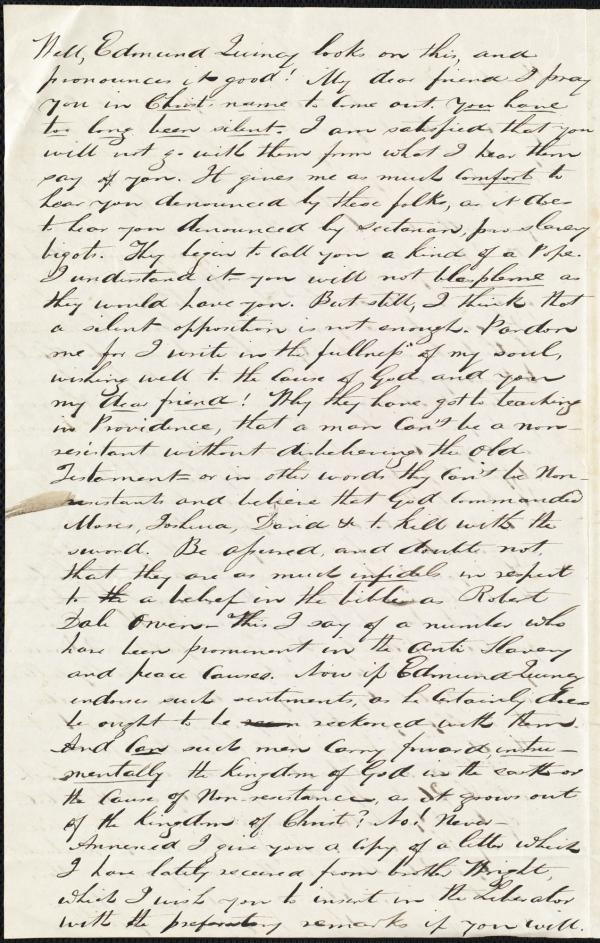 Well, Edmund Quincy looks on this, and
pronounces it good! My dear friend I pray
you in Christ's name to come out. You have
too long been silent. I am satisfied that you
will not go with them from what I hear them
say of you. It gives me as much comfort to
hear you denounced by these folks, as it does
to hear you denounced by sectarian, pro slavery
bigots. They began to call you a kind of a Pope.
I understand it you will not blaspheme as
they would have you. But still, I think that
a silent opposition is not enough. Pardon
me for I write in the fullness of my soul,
wishing well to the cause of God and you
my dear friend! Why they have got to teaching
in Providence, that a man can't be a non-
resistant without disbelieving the Old
Testament - or in other words they can't be Non-
resistants and believe that God commanded
Moses, Joshua, David &c to kill with the
sword. Be assured, and doubt not,
that they are as much infidels in respect
to the a belief in the bible as Robert
Dale Owen - This I say of a number who
have been prominent in the Anti Slavery
and peace causes. Now if Edmund Quincy
endorses such sentiments, as he certainly does
he ought to be reckened with them.
And can such men carry forward instru-
mentally the kingdom of God in the earth or
the cause of Non-resistance, as it grows out
of the kingdom of Christ? No! Never -
Annexed I give you a copy of a letter which
I have lately received from brother Wright,
which I wish you to insert in the Liberator
with the prefatory remarks if you will.